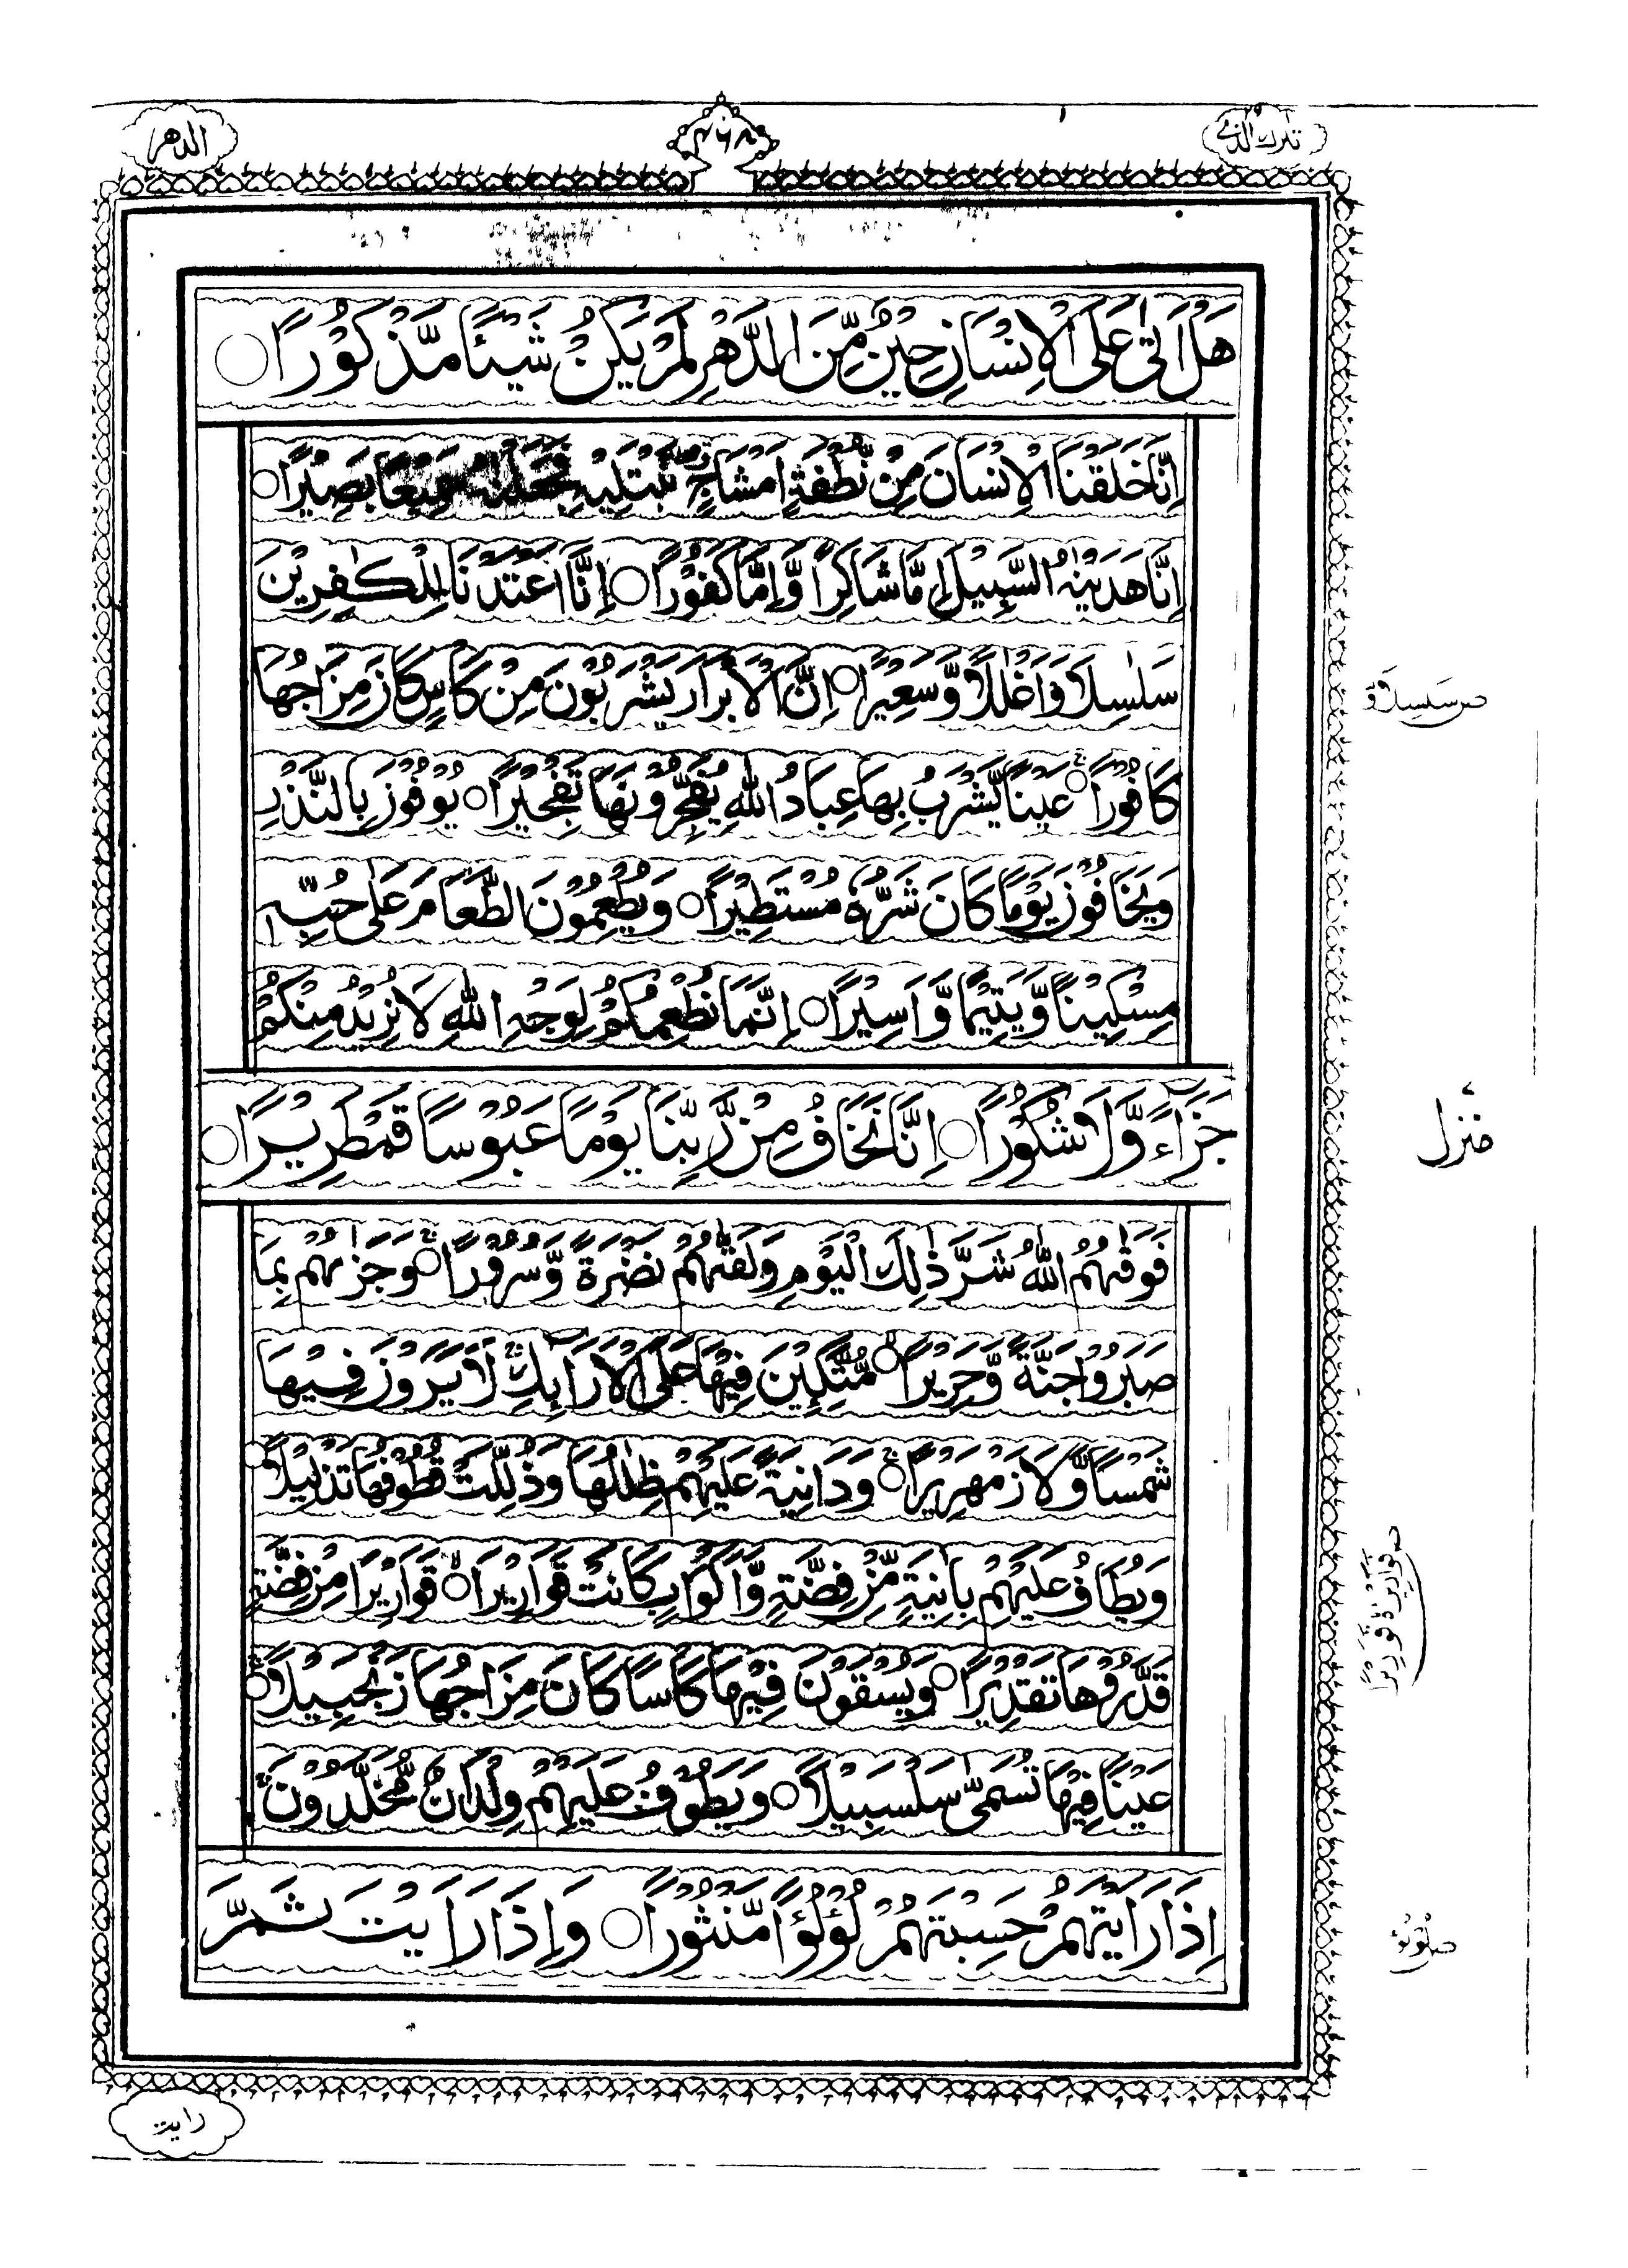 تبٰرك الذی ٢٩
٤٦٨
الدهر
هَلْ اَتٰى عَلَى الْاِنْسَانِ حِيْنٌ مِّنَ الدَّهْرِ لَمْ يَكُنْ شَيْئًا مَّذْكُوْرًا ○
اِنَّا خَلَقْنَا الْاِنْسَانَ مِنْ نُّطْفَةٍ اَمْشَاجٍ نَّبْتَلِيْهِ فَجَعَلْنٰهُ سَمِيْعًا بَصِيْرًا ○
اِنَّا هَدَيْنٰهُ السَّبِيْلَ اِمَّا شَاكِرًا وَّاِمَّا كَفُوْرًا ○ اِنَّا اَعْتَدْنَا لِلْكٰفِرِيْنَ
سَلٰسِلَا۟ وَاَغْلٰلًا وَّسَعِيْرًا ○ اِنَّ الْاَبْرَارَ يَشْرَبُوْنَ مِنْ كَاْسٍ كَانَ مِزَاجُهَا
كَافُوْرًا ○ عَيْنًا يَّشْرَبُ بِهَا عِبَادُ اللّٰهِ يُفَجِّرُوْنَهَا تَفْجِيْرًا ○ يُوْفُوْنَ بِالنَّذْرِ
وَيَخَافُوْنَ يَوْمًا كَانَ شَرُّهٗ مُسْتَطِيْرًا ○ وَيُطْعِمُوْنَ الطَّعَامَ عَلٰى حُبِّهٖ
مِسْكِيْنًا وَّيَتِيْمًا وَّاَسِيْرًا ○ اِنَّمَا نُطْعِمُكُمْ لِوَجْهِ اللّٰهِ لَا نُرِيْدُ مِنْكُمْ
جَزَآءً وَّلَا شُكُوْرًا ○ اِنَّا نَخَافُ مِنْ رَّبِّنَا يَوْمًا عَبُوْسًا قَمْطَرِيْرًا ○
فَوَقٰهُمُ اللّٰهُ شَرَّ ذٰلِكَ الْيَوْمِ وَلَقّٰهُمْ نَضْرَةً وَّسُرُوْرًا ○ وَجَزٰىهُمْ بِمَا
صَبَرُوْا جَنَّةً وَّحَرِيْرًا ○ مُّتَّكِـِٕيْنَ فِيْهَا عَلَى الْاَرَآىِٕكِ لَا يَرَوْنَ فِيْهَا
شَمْسًا وَّلَا زَمْهَرِيْرًا ○ وَدَانِيَةً عَلَيْهِمْ ظِلٰلُهَا وَذُلِّلَتْ قُطُوْفُهَا تَذْلِيْلًا ○
وَيُطَافُ عَلَيْهِمْ بِاٰنِيَةٍ مِّنْ فِضَّةٍ وَّاَكْوَابٍ كَانَتْ قَوَارِيْرَا۟ ○ قَوَارِيْرَا۟ مِنْ فِضَّةٍ
قَدَّرُوْهَا تَقْدِيْرًا ○ وَيُسْقَوْنَ فِيْهَا كَاْسًا كَانَ مِزَاجُهَا زَنْجَبِيْلًا ○
عَيْنًا فِيْهَا تُسَمّٰى سَلْسَبِيْلًا ○ وَيَطُوْفُ عَلَيْهِمْ وِلْدَانٌ مُّخَلَّدُوْنَ
اِذَا رَاَيْتَهُمْ حَسِبْتَهُمْ لُؤْلُؤًا مَّنْثُوْرًا ○ وَاِذَا رَاَيْتَ ثَمَّ
منزل
رايت